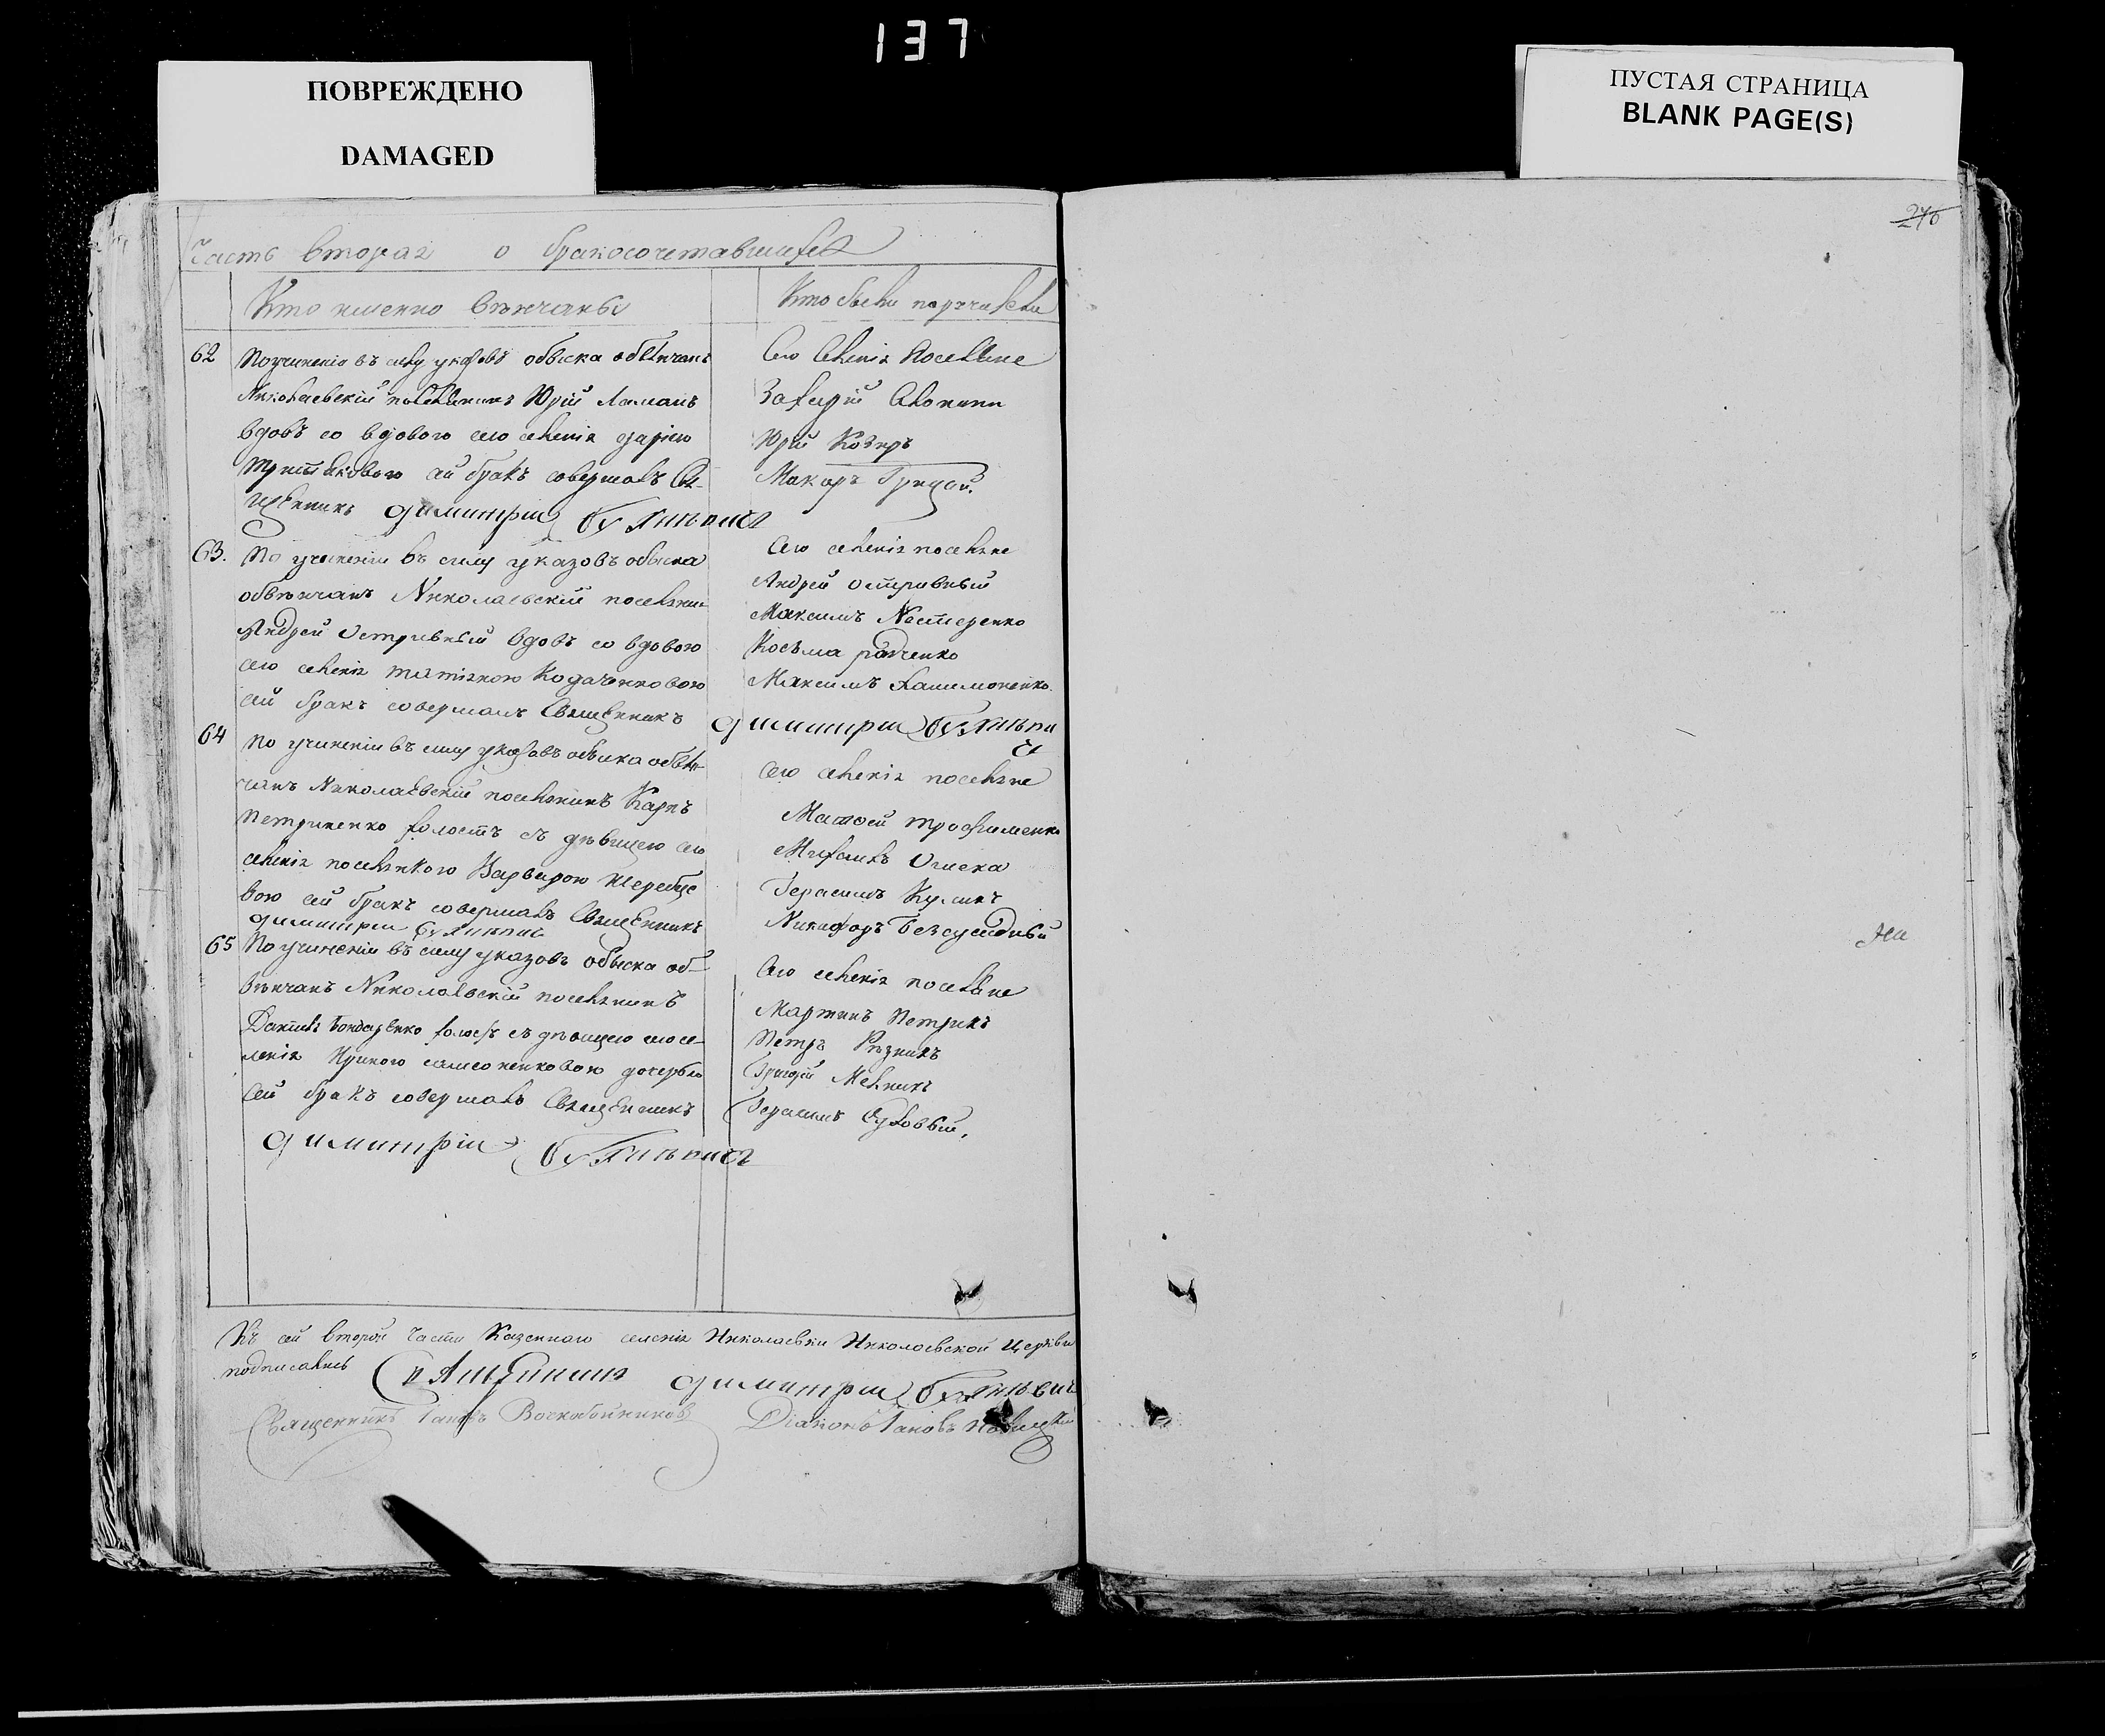 137
ПОВРЕЖДЕНО
DAMAGED
ПУСТАЯ СТРАНИЦА
BLANK PAGE(S)
276
Часть вторая о бракосочетавшихся
Кто именно вѣнчаны
Кто были поручители
62
По учиненіи въ силу указовъ обыска обвѣнчанъ
Николаевскій поселянинъ Юрій
вдовъ со вдовою сего селенія Даріею
сей бракъ совершалъ Свя-
щенникъ Димитрій
Сего селенія поселяне
Захарій
Юрій Козиръ
Макаръ Гридай.
63.
По учиненіи въ силу указовъ обыска
обвѣнчанъ Николаевскій поселянин
Андрей Остривный вдовъ со вдовою
сего селенія Татіяною Кодаченковою
сей бракъ совершалъ Священникъ
Димитрій
Сего селенія поселяне
Андрей Остривный
Максимъ Нестеренко
Косьма Радченко
Максимъ
64
По учиненіи въ силу указовъ обыска обвѣн-
чанъ Николаевскій поселянинъ Карпъ
Петриненко холостъ съ дѣвицею сего
селенія поселянкою Варварою Жеребце
вою сей бракъ совершалъ Священникъ
Димитрій
Сего селенія поселяне
Матвей Трофименко
Михаилъ
Герасимъ Куликъ
Никифоръ
65
По учиненіи въ силу указовъ обыска об-
вѣнчанъ Николаевскій поселянинъ
Даніилъ Бондаренко холостъ съ дѣвицею сего се-
ленія Ириною Самсоненковою дочерью
сей бракъ совершалъ Священникъ
Димитрій
Сего селенія поселяне
Мартинъ Петрикъ
Петръ Рѣзникъ
Григорій Мельникъ
Герасимъ Суховый.
Къ сей второй части Казенного селенія Николаевки Николаевской Церкви
подписались
Священникъ Димитрій
Священникъ Іаковъ Воскобойниковъ
Діаконъ Іаковъ